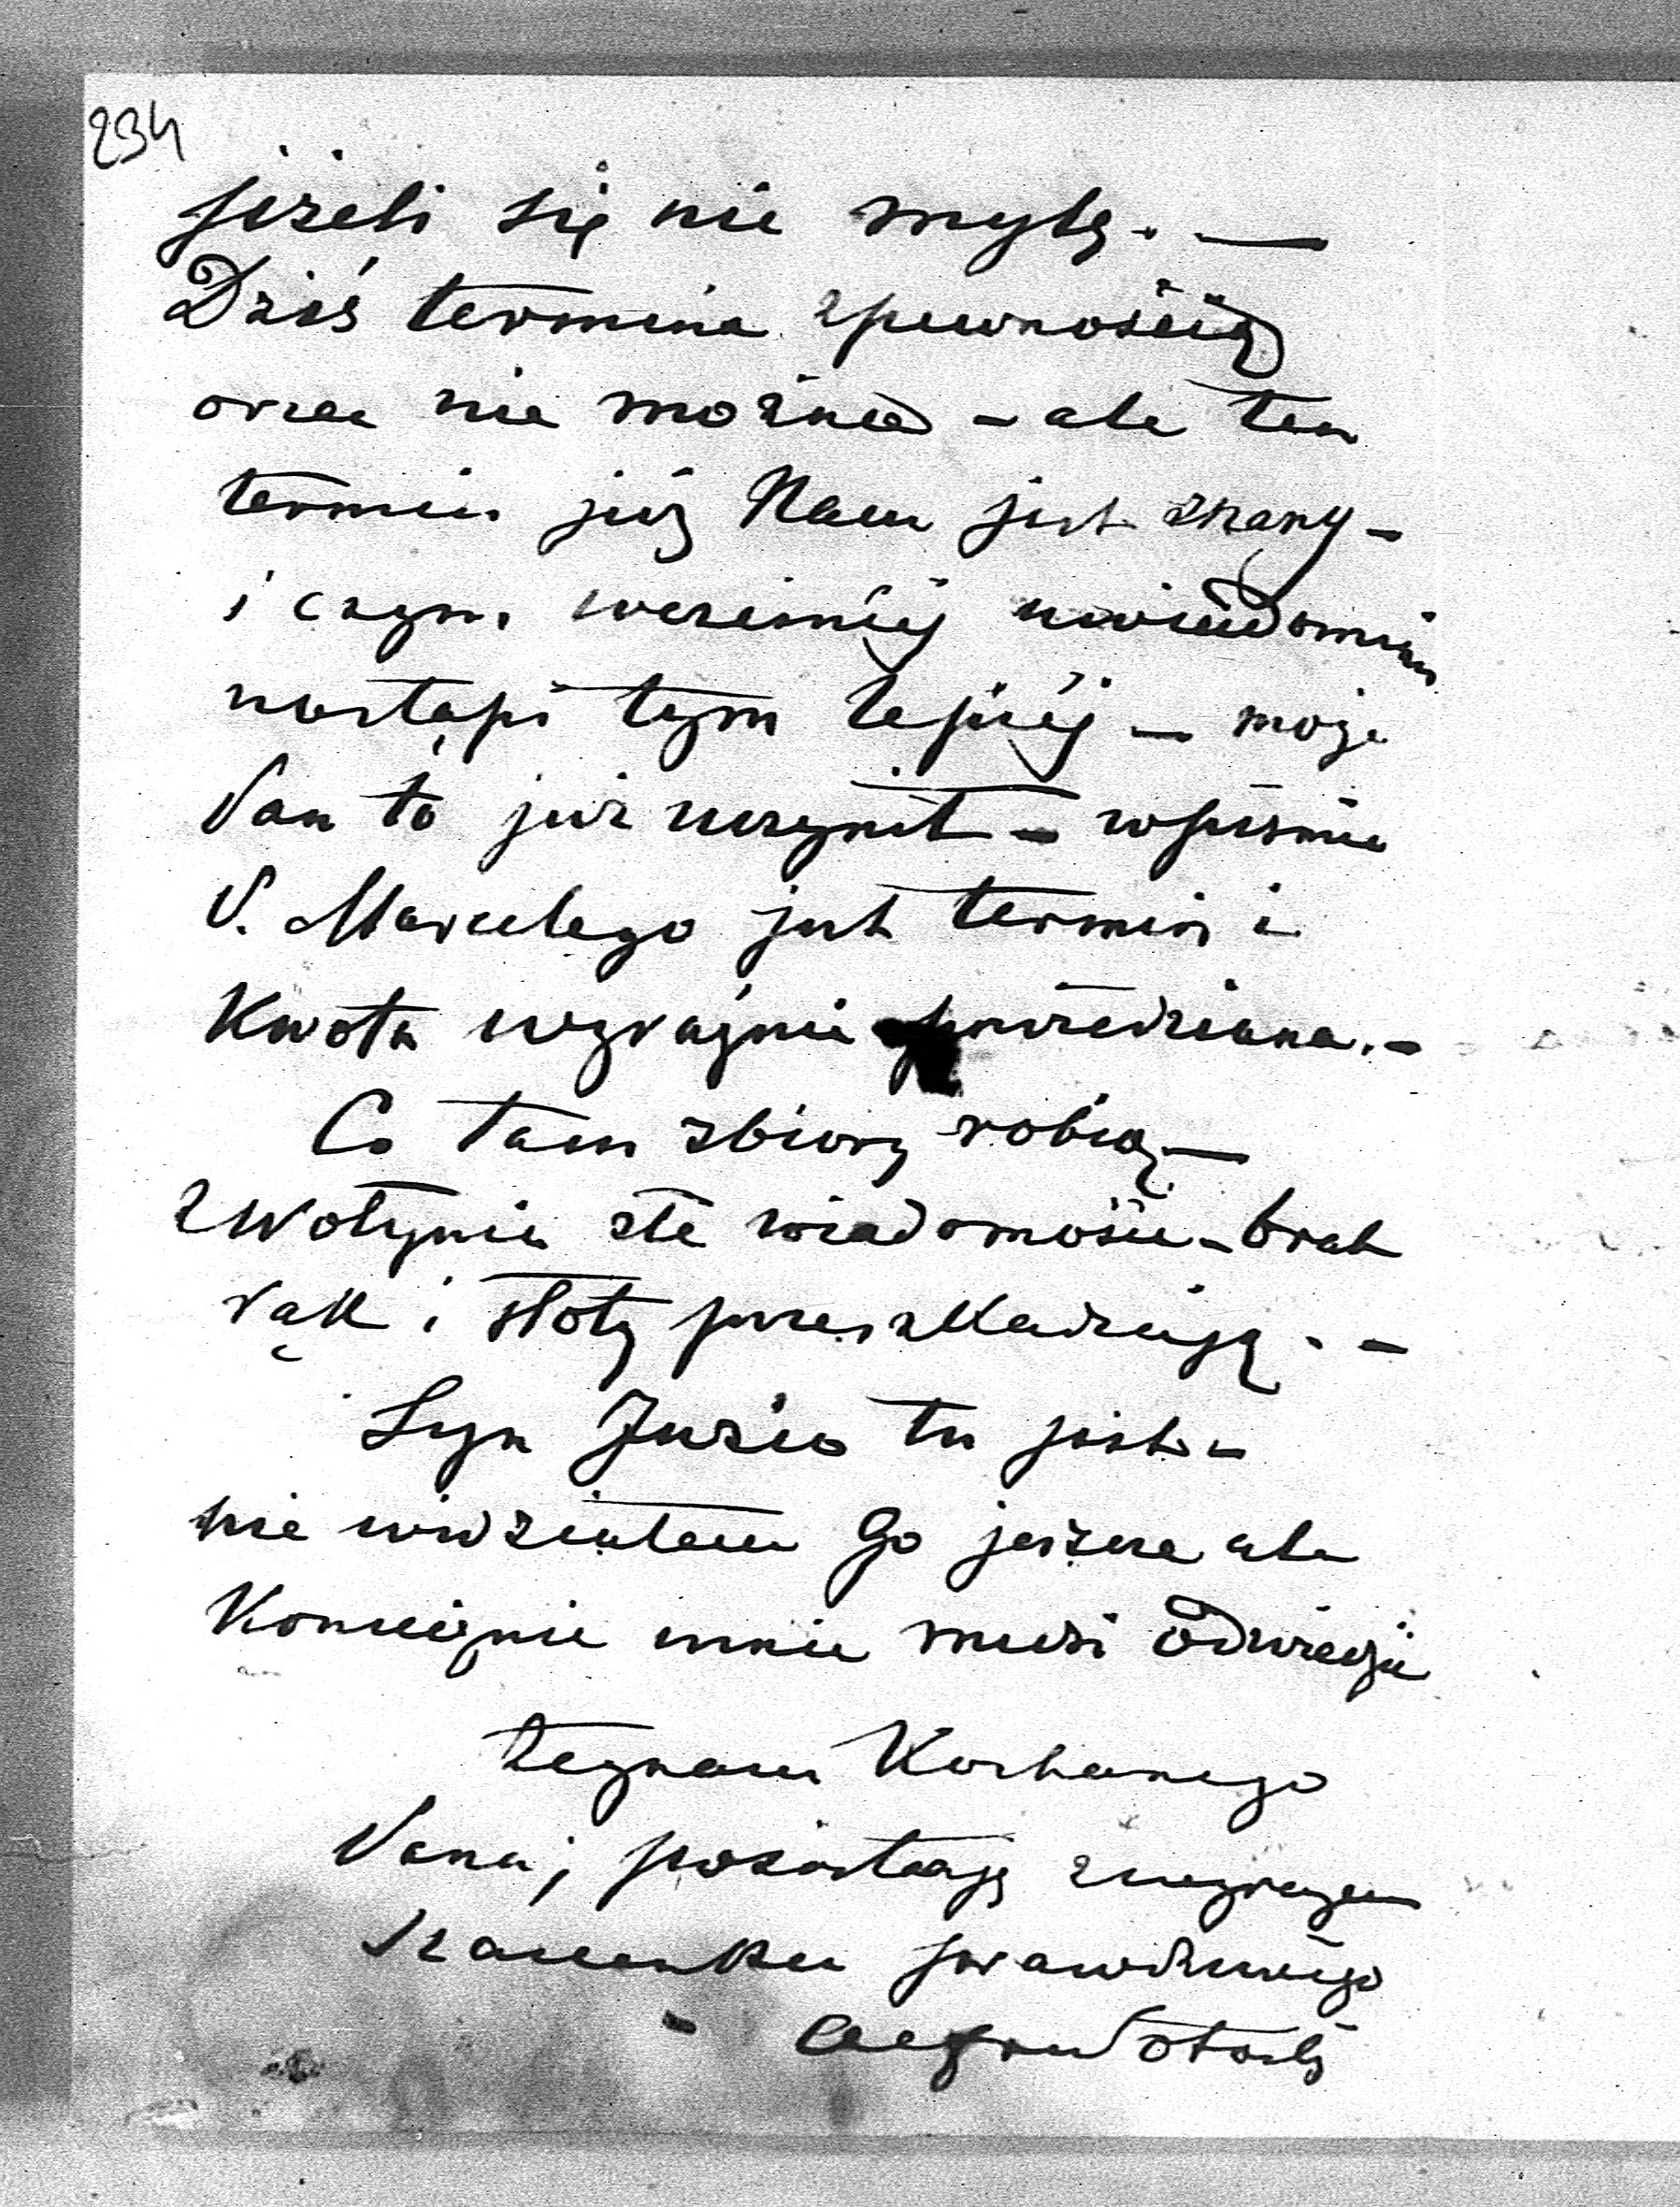 234
jeżeli się nie mylę. —
Dziś termina zpewnością
orzec nie można – ale ten
termin już Nam jest znany –
i czym wcześniej uwiadomien
nastąpi tym lepiej – może
Pan to już uczynił – wpiśmie
P. Marcelego jest termin i
Kwota wyraźnie powiedziana. –
Co tam zbiory robią –
zWołynia złe wiadomości – brak
rąk i słoty przeszkadzają. –
Syn Józio tu jest –
nie widziałem Go jeszcze ale
Koniecznie mnie musi odwiedzić
Żegnam Kochanego
Pana, pozostaję zwyrazem
szacunku prawdziwego